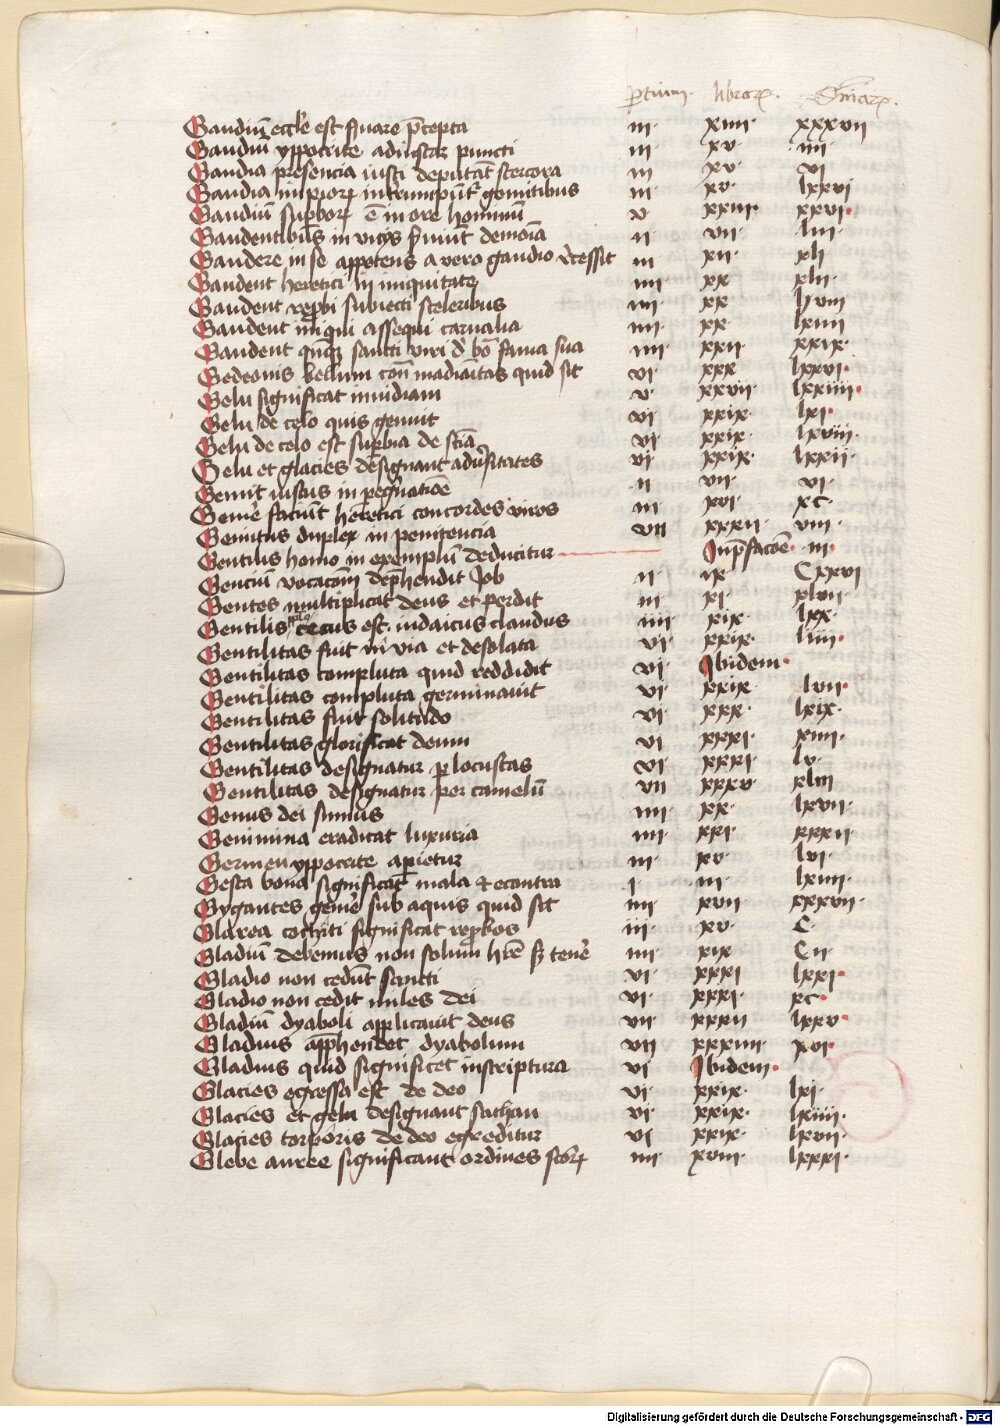 ꝑtium· libroꝝ· Sn̄iaꝝ·
Gaudiū eccl̄e est s̄uare p̄cepta iii· xiiii· xxxvii
Gaudiū yppocrite ad instar puncti iii xv· iiii·
Gaudia presencia iusti deputāt stercora iii xv· vi
Gaudia impioꝝ interrumpūt᷑ gemitibus iii· xv· lxxvi
Gaudiū suꝑboꝝ ē in ore hominū v· xxiii· xxvi·
Gaudentibus in vicijs demōia ii· vii· liii·
Gaudere in se appetens a vero gaudio recessit iii· xii· xli
Gaudent heretici in iniquitate iiii· xx xlii·
Gaudent repbi subiecti sceleribus iiii· xx lxviii
Gaudent iniqui assequi carnalia iiii· xx· lxiiii
Gaudent qn̄qꝫ sancti viri de bōa fama sua iiii· xxii· xxix·
Gedeonis bellum cont madianitas quid sit vi· xxx lxxvi·
Gelu significat inuidiam v· xxvii· lxxiiii·
Gelu de celo quis genuit vi xxix· lxi·
Gelu de celo est suꝑbia de sciā vi· xxix· lxviii·
Gelu et glacies designant adūsitates vi xxix· lxxii·
Gemit iustus in peḡnatiōe ii vii· vi·
Gemē faciūt heretici concordes viros iii· xvi· xc·
Gemitus duplex in penitencia vii xxxii· viii·
Gentilis homo in exemplū deducitur Inp̄facōe· iii·
Genciū vocacōm dep̄hendit Job ii· ix· Cxxvi
Gentes multiplicat deus et perdit iii· xi· xlvii·
Gentilis ppl̄s cecus est· iudaicus claudus iiii· xix· lxx·
Gentilitas fuit in via et desolata vi· xxix· liiii·
Gentilitas compluta quid reddidit vi· Ibidem·
Gentilitas compluta germinauit vi· xxix· lvii·
Gentilitas fuit solitudo vi· xxx· lxix·
Gentilitas glorificat deum vi xxxi· xiiii·
Gentilitas designatur ꝑ locustas vi· xxxi· lv·
Gentilitas designatur per camelū vii· xxxv xliii
Genus dei sumus iiii· xx· lxvii·
Genimina eradicat luxuria iiii· xxi· xxxii
Germen yppocrite aꝑietur iii· xv· lvi·
Gesta bona significāt mala ⁊ econtra i· iii· lxiiii·
Gygantes gemē sub aquis quid sit iiii· xvii xxxvii·
Glarea cochiti significat reprobos iii· xv· C·
Gladiū debemus non solum hr̄e sꝫ tenē iiii· xix· Cii
Gladio non cedūt sancti vi· xxxi· lxxi·
Gladio non cedit miles dei vi· xxxi· xc·
Gladiū dyaboli applicauit deus vii· xxxii lxxv·
Gladius app̄hendet dyabolum vii xxxiiii· xvi·
Gladius quid significet in scriptura vi Ibidem·
Glacies egressa est de deo vi· xxix· lxi·
Glacies et gelu designant sathan vi· xxix· lxiiii·
Glacies corporis de deo egreditur vi xxix· lxvii·
Glebe auree significant ordines sc̄oꝝ iiii· xviii· lxxxi·
Digitalisierung gefördert durch die Deutsche Forschungsgemeinschaft - DFG